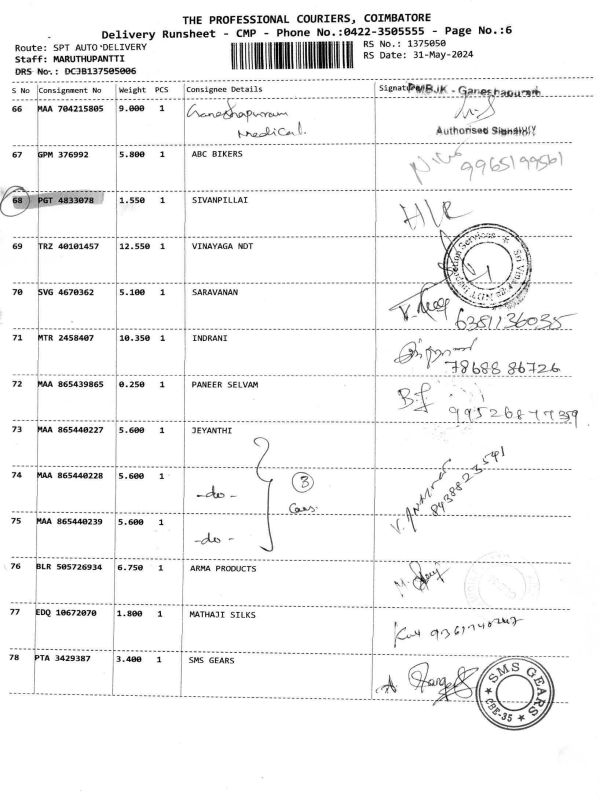 THE PROFESSIONAL COURIERS, COIMBATORE
Delivery Runsheet - CMP - Phone No.:0422-3505555 - Page No.:6
Route: SPT AUTO DELIVERY
RS No.: 1375050
Staff: MARUTHUPANTTI
RS Date: 31-May-2024
DRS No.: DCJB137505006
S No Consignment No Weight PCS Consignee Details Signature
PMBJK - Ganeshapuram
66 MAA 704215805 9.000 1 Ganeshapuram
Medical.
Authorised Signatory
67 GPM 376992 5.800 1 ABC BIKERS
9965199561
68 PGT 4833078 1.550 1 SIVANPILLAI
69 TRZ 40101457 12.550 1 VINAYAGA NDT
70 SVG 4670362 5.100 1 SARAVANAN
6381136035
71 MTR 2458407 10.350 1 INDRANI
78688 86726
72 MAA 865439865 0.250 1 PANEER SELVAM
73 MAA 865440227 5.600 1 JEYANTHI
74 MAA 865440228 5.600 1 -do- 3
8438823541
75 MAA 865440239 5.600 1 -do-
76 BLR 505726934 6.750 1 ARMA PRODUCTS
77 EDQ 10672070 1.800 1 MATHAJI SILKS
78 PTA 3429387 3.400 1 SMS GEARS
SMS GEARS
CBE-35